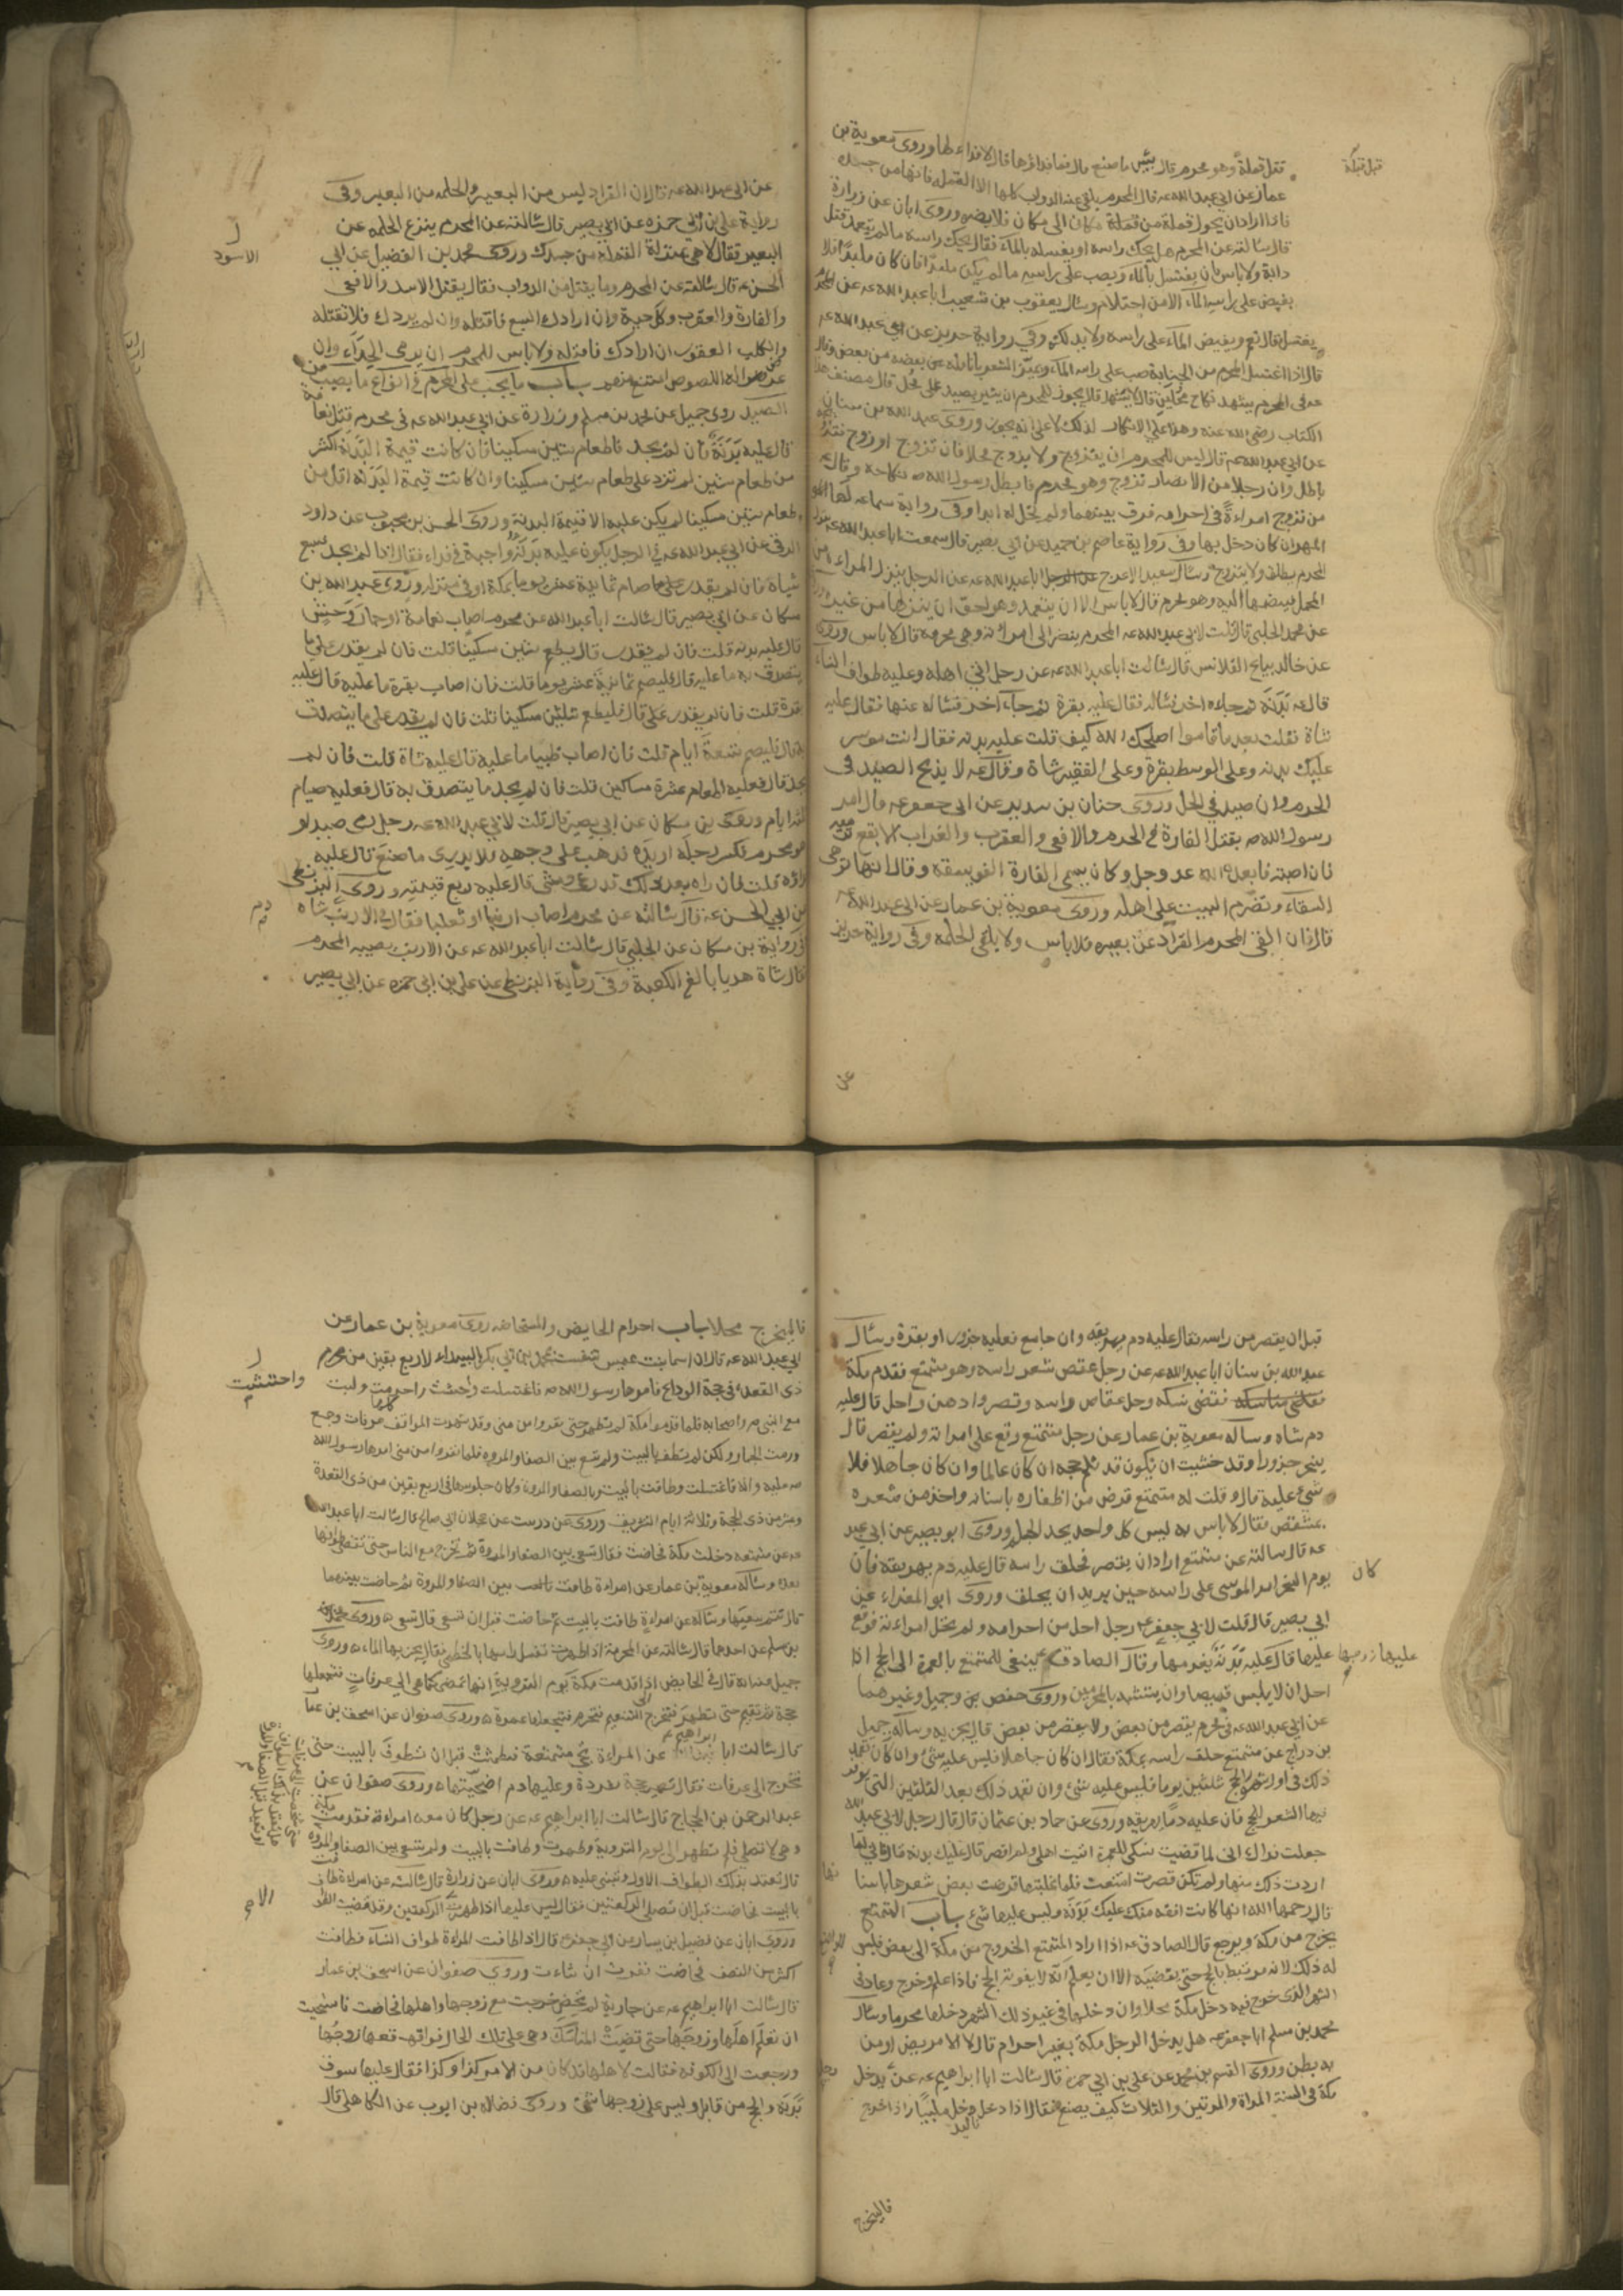 تقتل قملة وهو محرم قال بئس ما صنع قال فما فداؤها قال لا فداء لها وروى معوية بن
عمار عن ابي عبد الله عه قال المحرم يلقى عنه الدواب كلها الا القملة فانها من جسده
فاذا اراد ان يحول قملة من مكان الى مكان فلا يضره وروى ابان عن زرارة
قال سالته عن المحرم هل يحك راسه او يغسله بالماء فقال يحك راسه ما لم يتعمد قتل
دابة ولا باس بان يغتسل بالماء ويصب على راسه ما لم يكن ملبدا فان كان ملبدا فلا
يفيض على راسه الماء الا من احتلام وسال يعقوب بن شعيب ابا عبد الله عه عن المحرم
يغتسل فقال نعم ويفيض الماء على راسه ولا يدلكه وفي رواية حريز عن ابي عبد الله عه
قال اذا اغتسل المحرم من الجنابة صب على راسه الماء ويميز الشعر بانامله بعضه من بعض وقال
عه في المحرم يشهد نكاح محلين قال لا يشهد فلا يجوز للمحرم ان يشير بصيد على محل قال مصنف هذا
الكتاب رضي الله عنه وهذا على الانكار لذلك لا على انه يجوز وروى عبد الله بن سنان
عن ابي عبد الله عه قال ليس للمحرم ان يتزوج ولا يزوج محلا فان تزوج او زوج فتزويجه
باطل وان رجلا من الانصار تزوج وهو محرم فابطل رسول الله ص نكاحه وقال عه
من تزوج امراءة في احرامه فرق بينهما ولم تحل له ابدا وفي رواية سماعة لها المهر
المهر ان كان دخل بها وفي رواية عاصم بن حميد عن ابي بصير قال سمعت ابا عبد الله عه يقول
المحرم يطلق ولا يتزوج وسال سعيد الاعرج ابا عبد الله عه عن الرجل ينزل المراءة من
المحمل فيضمها اليه وهو محرم قال لا باس الا ان يتعمد وهو احق ان ينزلها من غيره
عن محمد الحلبي قال قلت لابي عبد الله عه المحرم ينظر الى امراته وهي محرمة قال لا باس وروى
عن خالد بياع القلانس قال سالت ابا عبد الله عه عن رجل اتى اهله وعليه طواف النساء
قال عليه بدنة ثم جاءه اخر فساله فقال عليه بقرة ثم جاء اخر فساله عنها فقال عليه
شاة فقلت بعد ما قاموا اصلحك الله كيف قلت عليه بدنه فقال انت موسر
عليك بدنه وعلى الوسط بقرة وعلى الفقير شاة وقال عه لا يذبح الصيد في
الحرم وان صيد في الحل وروى حنان بن سدير عن ابي جعفر عه قال امر
رسول الله ص بقتل الفارة في الحرم والافعى والعقرب والغراب الابقع ترميه
فان اصبته فابعده الله عز وجل وكان يسمى الفارة الفويسقه وقال انها توهي
السقاء وتضرم البيت على اهله وروى معوية بن عمار عن ابي عبد الله عه
قال فان القى المحرم القراد عن بعيره فلا باس ولا يلقي الحلمة وفي رواية حريز
عن
عن ابي عبد الله عه قال ان القراد ليس من البعير والحلمه من البعير وفي
رواية علي بن ابي حمزه عن ابي بصير قال سالته عن المحرم ينزع الحلمه عن
البعير فقال لا هي بمنزلة القملة من جسدك وروى محمد بن الفضيل عن ابي
الحسن عه قال سالته عن المحرم وما يقتل من الدواب فقال يقتل الاسد والافعى
الاسود
والفارة والعقرب وكل حية وان ارادك السبع فاقتله وان لم يردك فلا تقتله
والكلب العقور ان ارادك فاقتله ولا باس للمحرم ان يرمي الحداء وان
عرض له اللصوص امتنع منهم باب ما يجب على المحرم في انواع ما يصيب من
الصيد روى جميل عن محمد بن مسلم وزرارة عن ابي عبد الله عه في محرم قتل نعامة
قال عليه بدنة فان لم يجد فاطعام ستين مسكينا فان كانت قيمة البدنة اكثر
من طعام ستين لم تزد على طعام ستين مسكينا وان كانت قيمة البدنة اقل من
طعام ستين مسكينا لم يكن عليه الا قيمة البدنة وروى الحسن بن محبوب عن داود
الرقي عن ابي عبد الله عه في الرجل يكون عليه بدنة واجبة في فداء فقال اذا لم يجد فسبع
شياة فان لم يقدر على صام ثمانية عشر يوما بمكة او في منزله وروى عبد الله بن
مسكان عن ابي بصير قال سالت ابا عبد الله عن محرم اصاب نعامة او حمار وحش
قال عليه بدنه قلت فان لم يقدر قال يطعم ستين مسكينا قلت فان لم يقدر على ما
يتصدق به ما عليه قال فليصم ثمانية عشر يوما قلت فان اصاب بقرة ما عليه قال عليه
بقرة قلت فان لم يقدر على قال فليطعم ثلثين مسكينا قلت فان لم يقدر على ما يتصدق
قال فليصم تسعة ايام قلت فان اصاب ظبيا ما عليه قال عليه شاة قلت فان لم
يجد قال فعليه اطعام عشرة مساكين قلت فان لم يجد ما يتصدق به قال فعليه صيام
ثلثة ايام وروى بن مسكان عن ابي بصير قال قلت لابي عبد الله عه رجل رمى صيدا و
هو محرم فكسر رجله او يده فذهب على وجهه فلا يدري ما صنع قال عليه
فداؤه قلت فان راه بعد ذلك قد رعى ومشى قال عليه ربع قيمته وروى البزنطي
عن ابي الحسن عه قال سالته عن محرم اصاب ارنبا او ثعلبا فقال في الارنب شاة
دم
وفي رواية بن مسكان عن الحلبي قال سالت ابا عبد الله عه عن الارنب يصيبه المحرم
قال شاة هديا بالغ الكعبة وفي رواية البزنطي عن علي بن ابي حمزه عن ابي بصير
قبل ان يقصر من راسه فقال عليه دم يهريقه وان جامع فعليه جزور او بقرة وسال
عبد الله بن سنان ابا عبد الله عه عن رجل عقص شعر راسه وهو متمتع فقدم مكة
فقضى نسكه وحل عقاص راسه وقصر وادهن واحل قال عليه
دم شاه وساله معوية بن عمار عن رجل متمتع وقع على امراته ولم يقصر قال
ينحر جزورا وقد خشيت ان يكون قد ثلم حجه ان كان عالما وان كان جاهلا فلا
شيء عليه قال وقلت له متمتع قرض من اظفاره باسنانه واخذ من شعره
بمشقص فقال لا باس به ليس كل واحد يجد الجلم وروى ابو بصير عن ابي عبد
عه قال سالته عن متمتع اراد ان يقصر فحلق راسه قال عليه دم يهريقه فان
كان
يوم النحر امر الموسى على راسه حين يريد ان يحلق وروى ابو المغراء عن
ابي بصير قال قلت لابي جعفر عه رجل احل من احرامه ولم تحل امراءته فوقع
عليها زوجها
عليها قال عليه بدنة يغرمها وقال الصادق عه ينبغي للمتمتع بالعمرة الى الحج اذا
احل ان لا يلبس قميصا وان يتشبه بالمحرمين وروى حفص بن وجميل وغيرهما
عن ابي عبد الله عه في محرم يقصر من بعض ولا يقصر من بعض قال يجزيه وساله جميل
بن دراج عن متمتع حلق راسه بمكة فقال ان كان جاهلا فليس عليه شيء وان كان تعمد
ذلك في اول شهور الحج ثلثين يوما فليس عليه شيء وان تعمد ذلك بعد الثلثين التي يوفر
فيها الشعر للحج فان عليه دما يهريقه وروى عن حماد بن عثمان قال قال رجل لابي عبد الله
جعلت فداك اني لما قضيت نسكي للعمرة اتيت اهلي ولم اقصر قال عليك بدنه قال فاني لما
اردت ذلك منها ولم تكن قصرت امتنعت فلما غلبتها قرضت بعض شعرها باسنا
نها
قال رحمها الله انها كانت افقه منك عليك بدنة وليس عليها شيء باب المتمتع
يخرج من مكة ويرجع قال الصادق عه اذا اراد المتمتع الخروج من مكة الى بعض فليس
المواضع
له ذلك لانه مرتبط بالحج حتى يقضيه الا ان يعلم انه لا يفوته الحج فاذا علم وخرج وعاد في
الشهر الذي خرج فيه دخل مكة محلا وان دخلها في غير ذلك الشهر دخلها محرما وسال
محمد بن مسلم ابا جعفر عه هل يدخل الرجل مكة بغير احرام قال لا الا مريض او من
به بطن وروى القسم بن محمد عن علي بن ابي حمزه قال سالت ابا ابراهيم عه عن يدخل
رجل
مكة في السنة المراة والمرتين والثلاث كيف يصنع فقال اذا دخل فليدخل ملبيا واذا خرج
فليخرج
فليخرج محلا باب احرام الحايض والمستحاضه روى معوية بن عمار عن
ابي عبد الله عه قال ان اسما بنت عميس نفست بمحمد بن ابي بكر بالبيداء لاربع بقين من
ذي القعدة في حجة الوداع فامرها رسول الله ص فاغتسلت واحتشت واحرمت ولبت
واحتشت
مع النبي ص واصحابه فلما قدموا مكة لم تطهر حتى نفروا من منى وقد شهدت المواقف عرفات وجمع
ورمت الجمار ولكن لم تطف بالبيت ولم تسع بين الصفا والمروه فلما نفروا من منى امرها رسول الله
ص عليه واله فاغتسلت وطافت بالبيت وبالصفا والمروة وكان جلوسها في اربع بقين من ذي القعدة
وعشر من ذي الحجة وثلاثة ايام التشريق وروى عن درست عن عجلان ابي صالح قال سالت ابا عبد الله
عه عن متمتعه دخلت مكة فحاضت فقال تسعى بين الصفا والمروة ثم تخرج مع الناس حتى تقضي طوافها
بعد وساله معوية بن عمار عن امراءة طافت بالبيت بين الصفا والمروة ثم حاضت بينهما
قال تتم سعيها وساله عن امراءة طافت بالبيت ثم حاضت قبل ان تسعى قال تسعى وروى محمد
بن مسلم عن احدهما قال سالته عن المحرمة اذا طهرت تغسل راسها بالخطمي فقال يجزيها الماء وروى
جميل عنه انه قال في الحايض اذا قدمت مكة يوم التروية انها تمضي كما هي الى عرفات فتجعلها
حجة ثم تقيم حتى تطهر فتخرج الى التنعيم فتحرم فتجعلها عمرة وروى صفوان عن اسحق بن عمار
قال سالت ابا ابراهيم عه عن المراءة تجي متمتعة فطمثت قبل ان تطوف بالبيت حتى
تخرج الى عرفات فقال تصير حجة مفردة وعليها دم اضحيتها وروى صفوان عن
عبد الرحمن بن الحجاج قال سالت ابا ابراهيم عه عن رجل كان معه امراءة فقدمت مكة
وهي لا تصلي فلم تطهر الى يوم التروية وطهرت وطافت بالبيت ولم تسع بين الصفا والمروة
قال تعتد بذلك الطواف الاول وتبني عليه وروى ابان عن زرارة قال سالته عن امراءة طافت
بالبيت فحاضت قبل ان تصلي الركعتين فقال ليس عليها اذا طهرت الا الركعتين وقد قضت الطو
وروى ابان عن فضيل بن يسار عن ابي جعفر عه قال اذا طافت المراءة طواف النساء فطافت
اكثر من النصف فحاضت نفرت ان شاءت وروى صفوان عن اسحق بن عمار
قال سالت ابا ابراهيم عه عن جارية لم تحض خرجت مع زوجها واهلها فحاضت فاستحيت
ان تعلم اهلها وزوجها حتى قضيت المناسك وهي على تلك الحال فواقعها زوجها
ورجعت الى الكوفه فقالت لاهلها قد كان من الامر كذا وكذا فقال عليها سوق
بدنه والحج من قابل وليس على زوجها شيء وروى فضاله بن ايوب عن الكاهلي قال